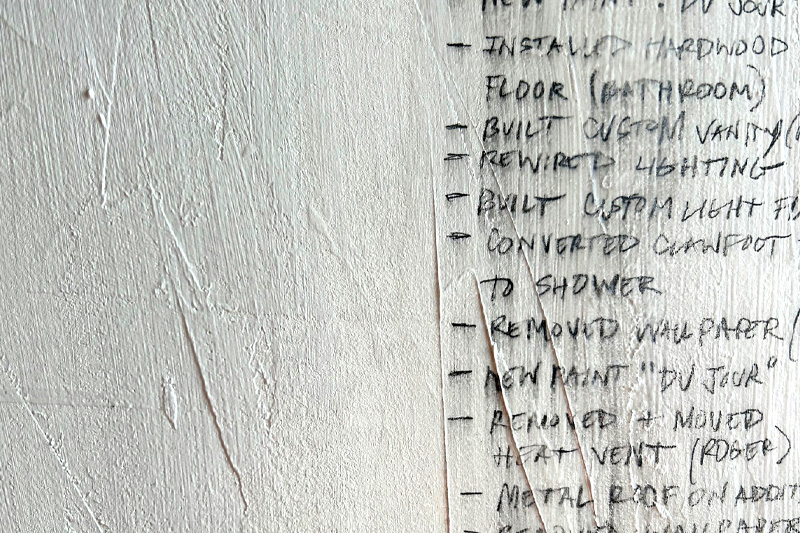 NEW PAINT: "DU JOUR
- INSTALLED HARDWOOD
FLOOR (BATHROOM)
- BUILT CUSTOM VANITY (
- REWIRED LIGHTING
- BUILT CUSTOM LIGHT FI
- CONVERTED CLAWFOOT
TO SHOWER
- REMOVED WALLPAPER (
- NEW PAINT "DU JOUR"
- REMOVED + MOVED
HEAT VENT (ROGER)
- METAL ROOF ON ADDIT
- REMOVED WALLPAPER